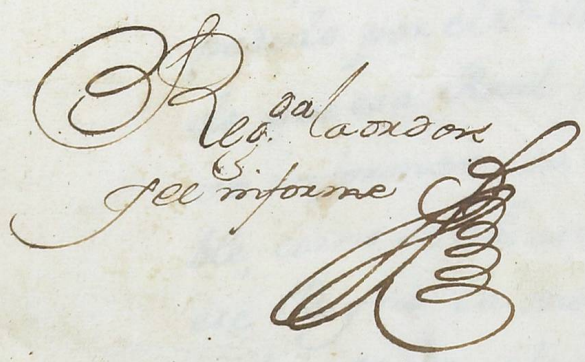 Reg.da la orden
y el informe